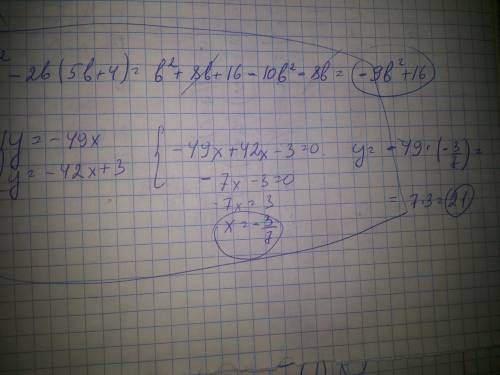 ² - 2b(5b+4) = b² + 8b + 16 - 10b² - 8b = -9b² + 16
y = -49x
y = -42x + 3
{ -49x + 42x - 3 = 0
- 7x - 3 = 0
-7x = 3
x = -3/7
y = -49 · (-3/7) =
= 7·3 = 21